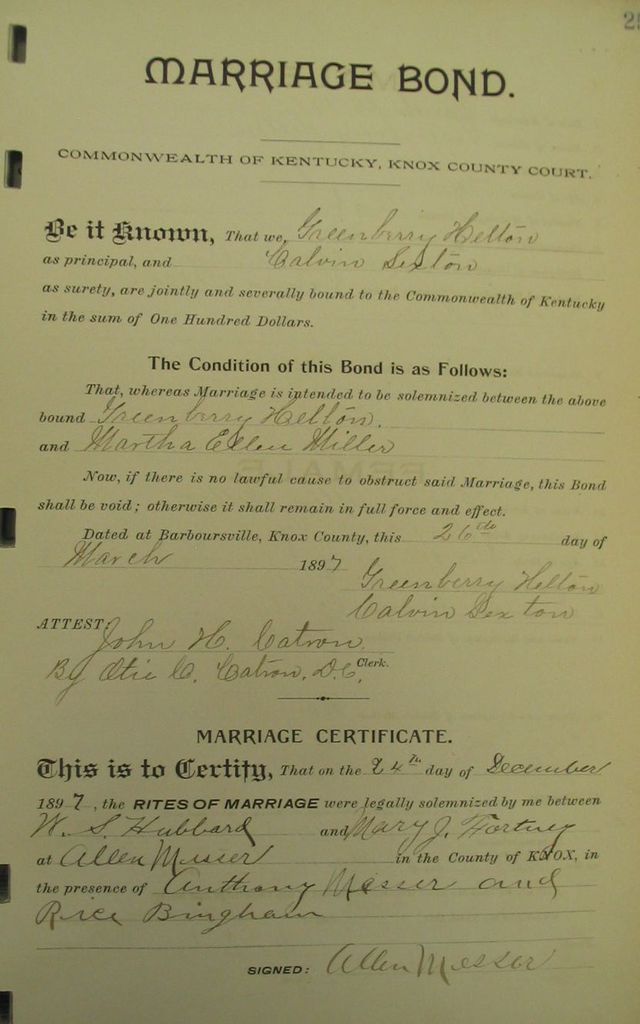 MARRIAGE BOND.
COMMONWEALTH OF KENTUCKY, KNOX COUNTY COURT.
Be it Known, That we, Greenberry Helton
as principal, and Calvin Sexton
as surety, are jointly and severally bound to the Commonwealth of Kentucky
in the sum of One Hundred Dollars.
The Condition of this Bond is as Follows:
That, whereas Marriage is intended to be solemnized between the above
bound Greenberry Helton.
and Martha Ellen Miller
Now, if there is no lawful cause to obstruct said Marriage, this Bond
shall be void; otherwise it shall remain in full force and effect.
Dated at Barboursville, Knox County, this 26th day of
March 1897
Greenberry Helton
Calvin Sexton
ATTEST:
John H. Catron
By Otie C. Catron, D.C. Clerk.
MARRIAGE CERTIFICATE.
This is to Certify, That on the 24th day of December
1897, the RITES OF MARRIAGE were legally solemnized by me between
W. S. Hubbard and Mary J. Fortney
at Allen Messer in the County of KNOX, in
the presence of Anthony Messer and
Rice Bingham
SIGNED: Allen Messer